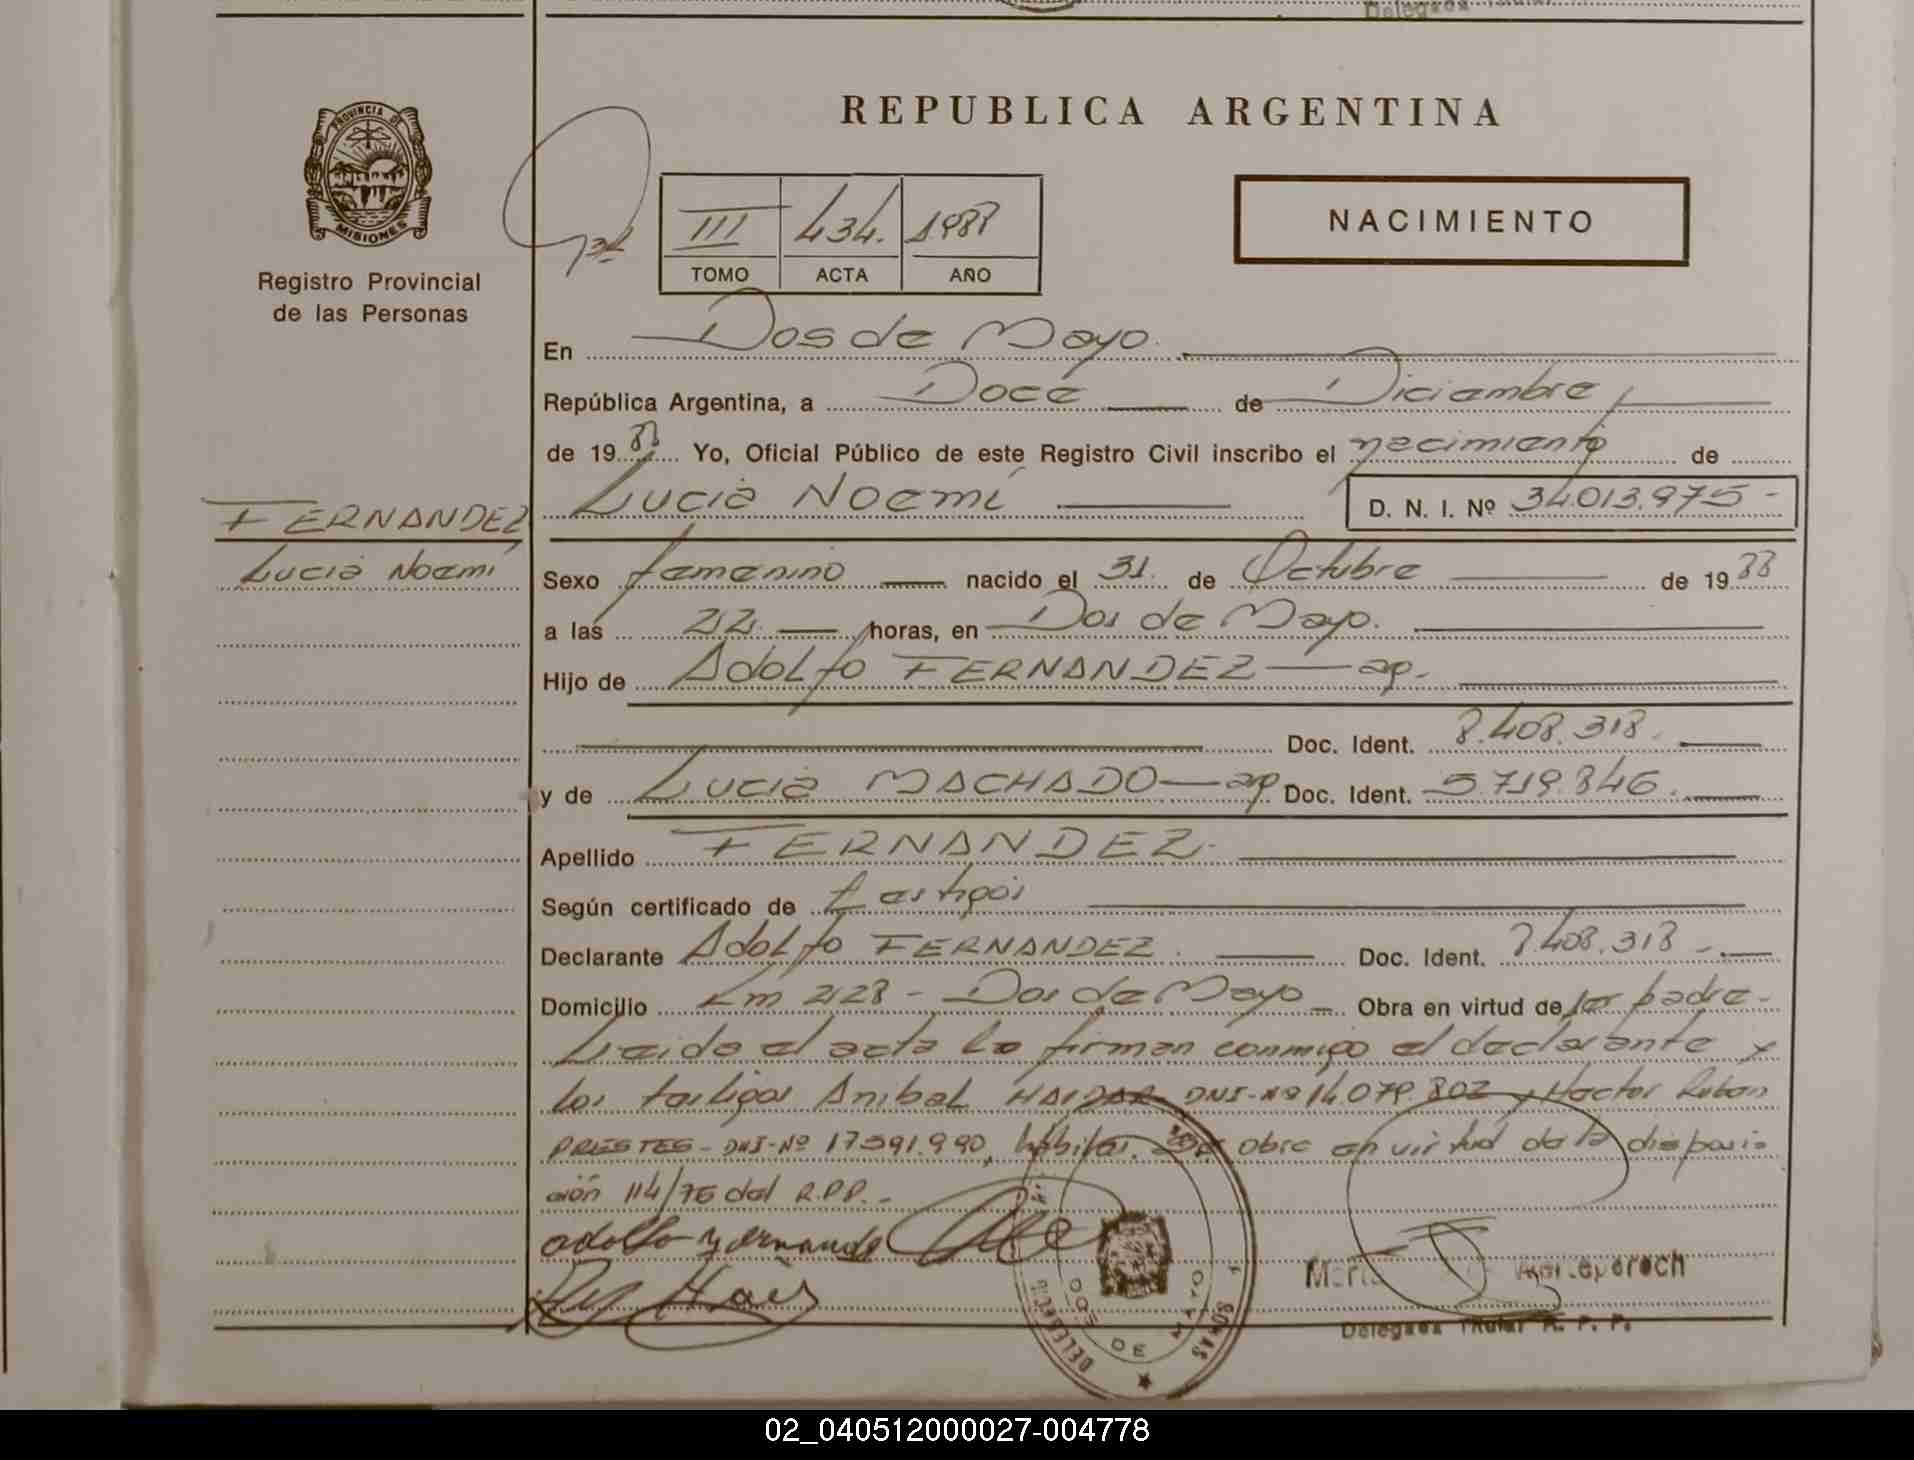 Delegada Titular
REPUBLICA ARGENTINA
PROVINCIA DE
MISIONES
Registro Provincial
de las Personas
III 434. 1988
TOMO ACTA AÑO
NACIMIENTO
En Dos de Mayo.
República Argentina, a Doce de Diciembre
de 1988 Yo, Oficial Público de este Registro Civil inscribo el nacimiento de
Lucia Noemí D. N. I. Nº 34.013.975-
FERNANDEZ
Lucia Noemí
Sexo femenino nacido el 31. de Octubre de 1988
a las 22. horas, en Dos de Mayo.
Hijo de Adolfo FERNANDEZ - ap.
Doc. Ident. 8.408.318.
y de Lucia MACHADO - ap Doc. Ident. 5.719.846.
Apellido FERNANDEZ.
Según certificado de testigos
Declarante Adolfo FERNANDEZ. Doc. Ident. 8.408.318.-
Domicilio Km 228 - Dos de Mayo - Obra en virtud de ser padre.-
Leida el acta la firman conmigo el declarante y
los testigos Anibal HAIDAR DNI-Nº 14.079.802 y Hector Ruben
PRIESTES - DNI-Nº 17391.990, hábiles. Obra en virtud de la disposi
ción 114/76 del R.P.P.-
adolfo Fernande
DOS DE MAYO
Delegada Titular R. P. P.
02_040512000027-004778